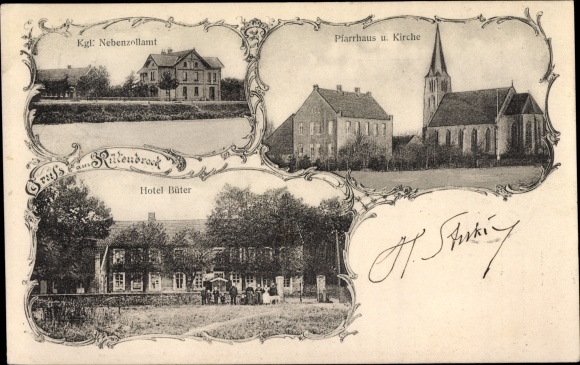 Kgl: Nebenzollamt
Pfarrhaus u. Kirche
Gruss aus Rütenbrock
Hotel Büter
H.